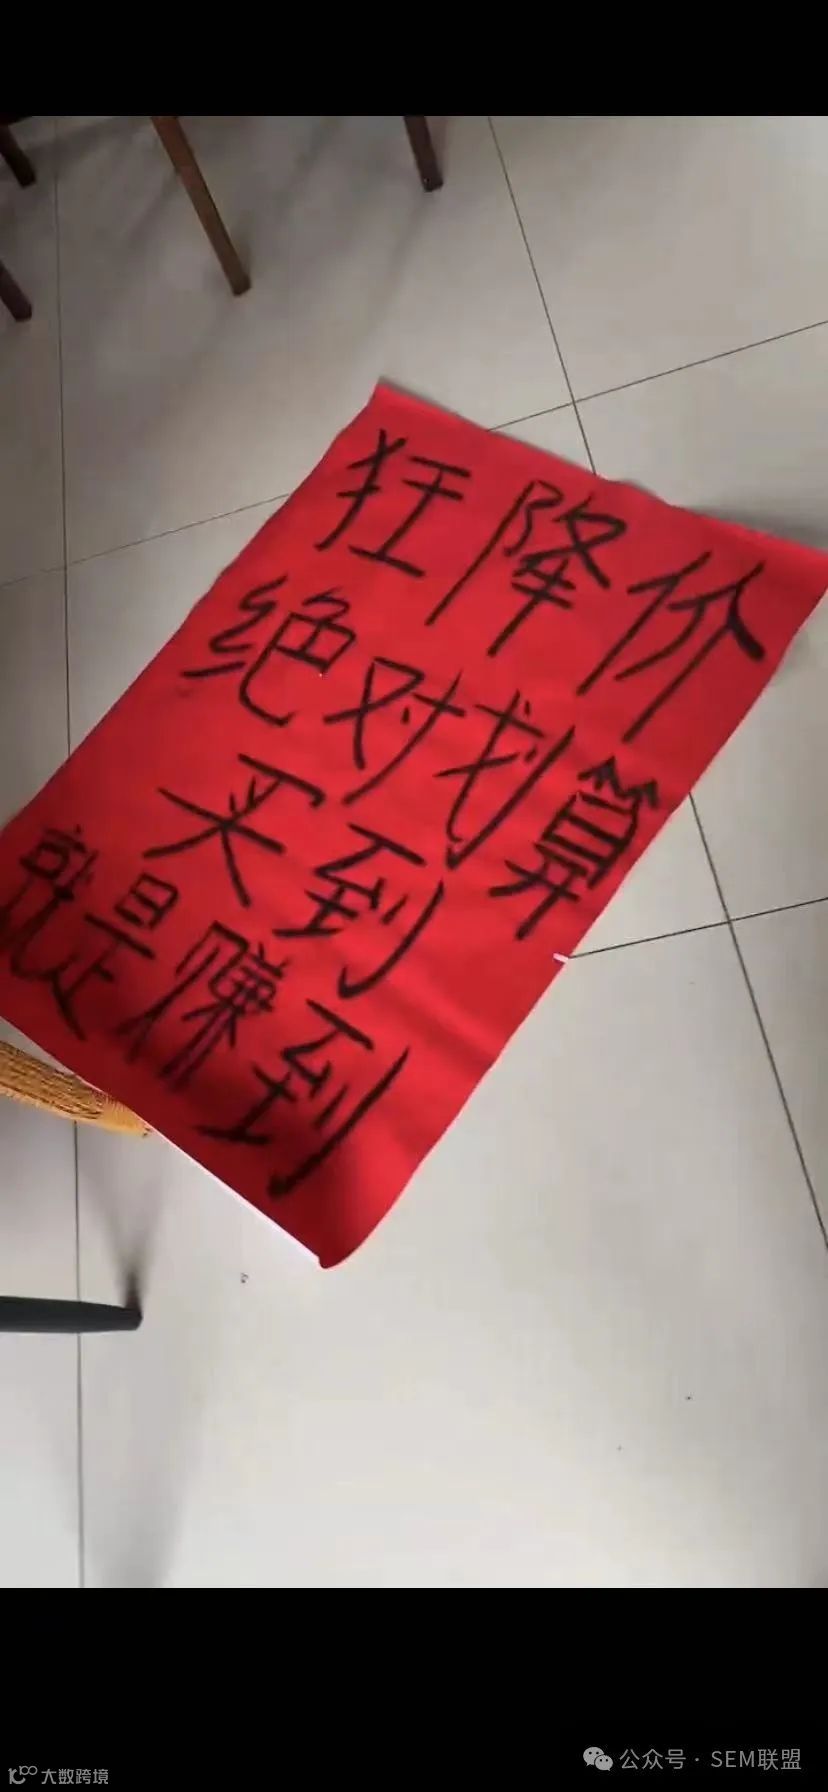 狂降价
绝对划算
买到
就是赚到
公众号 · SEM联盟
大数跨境